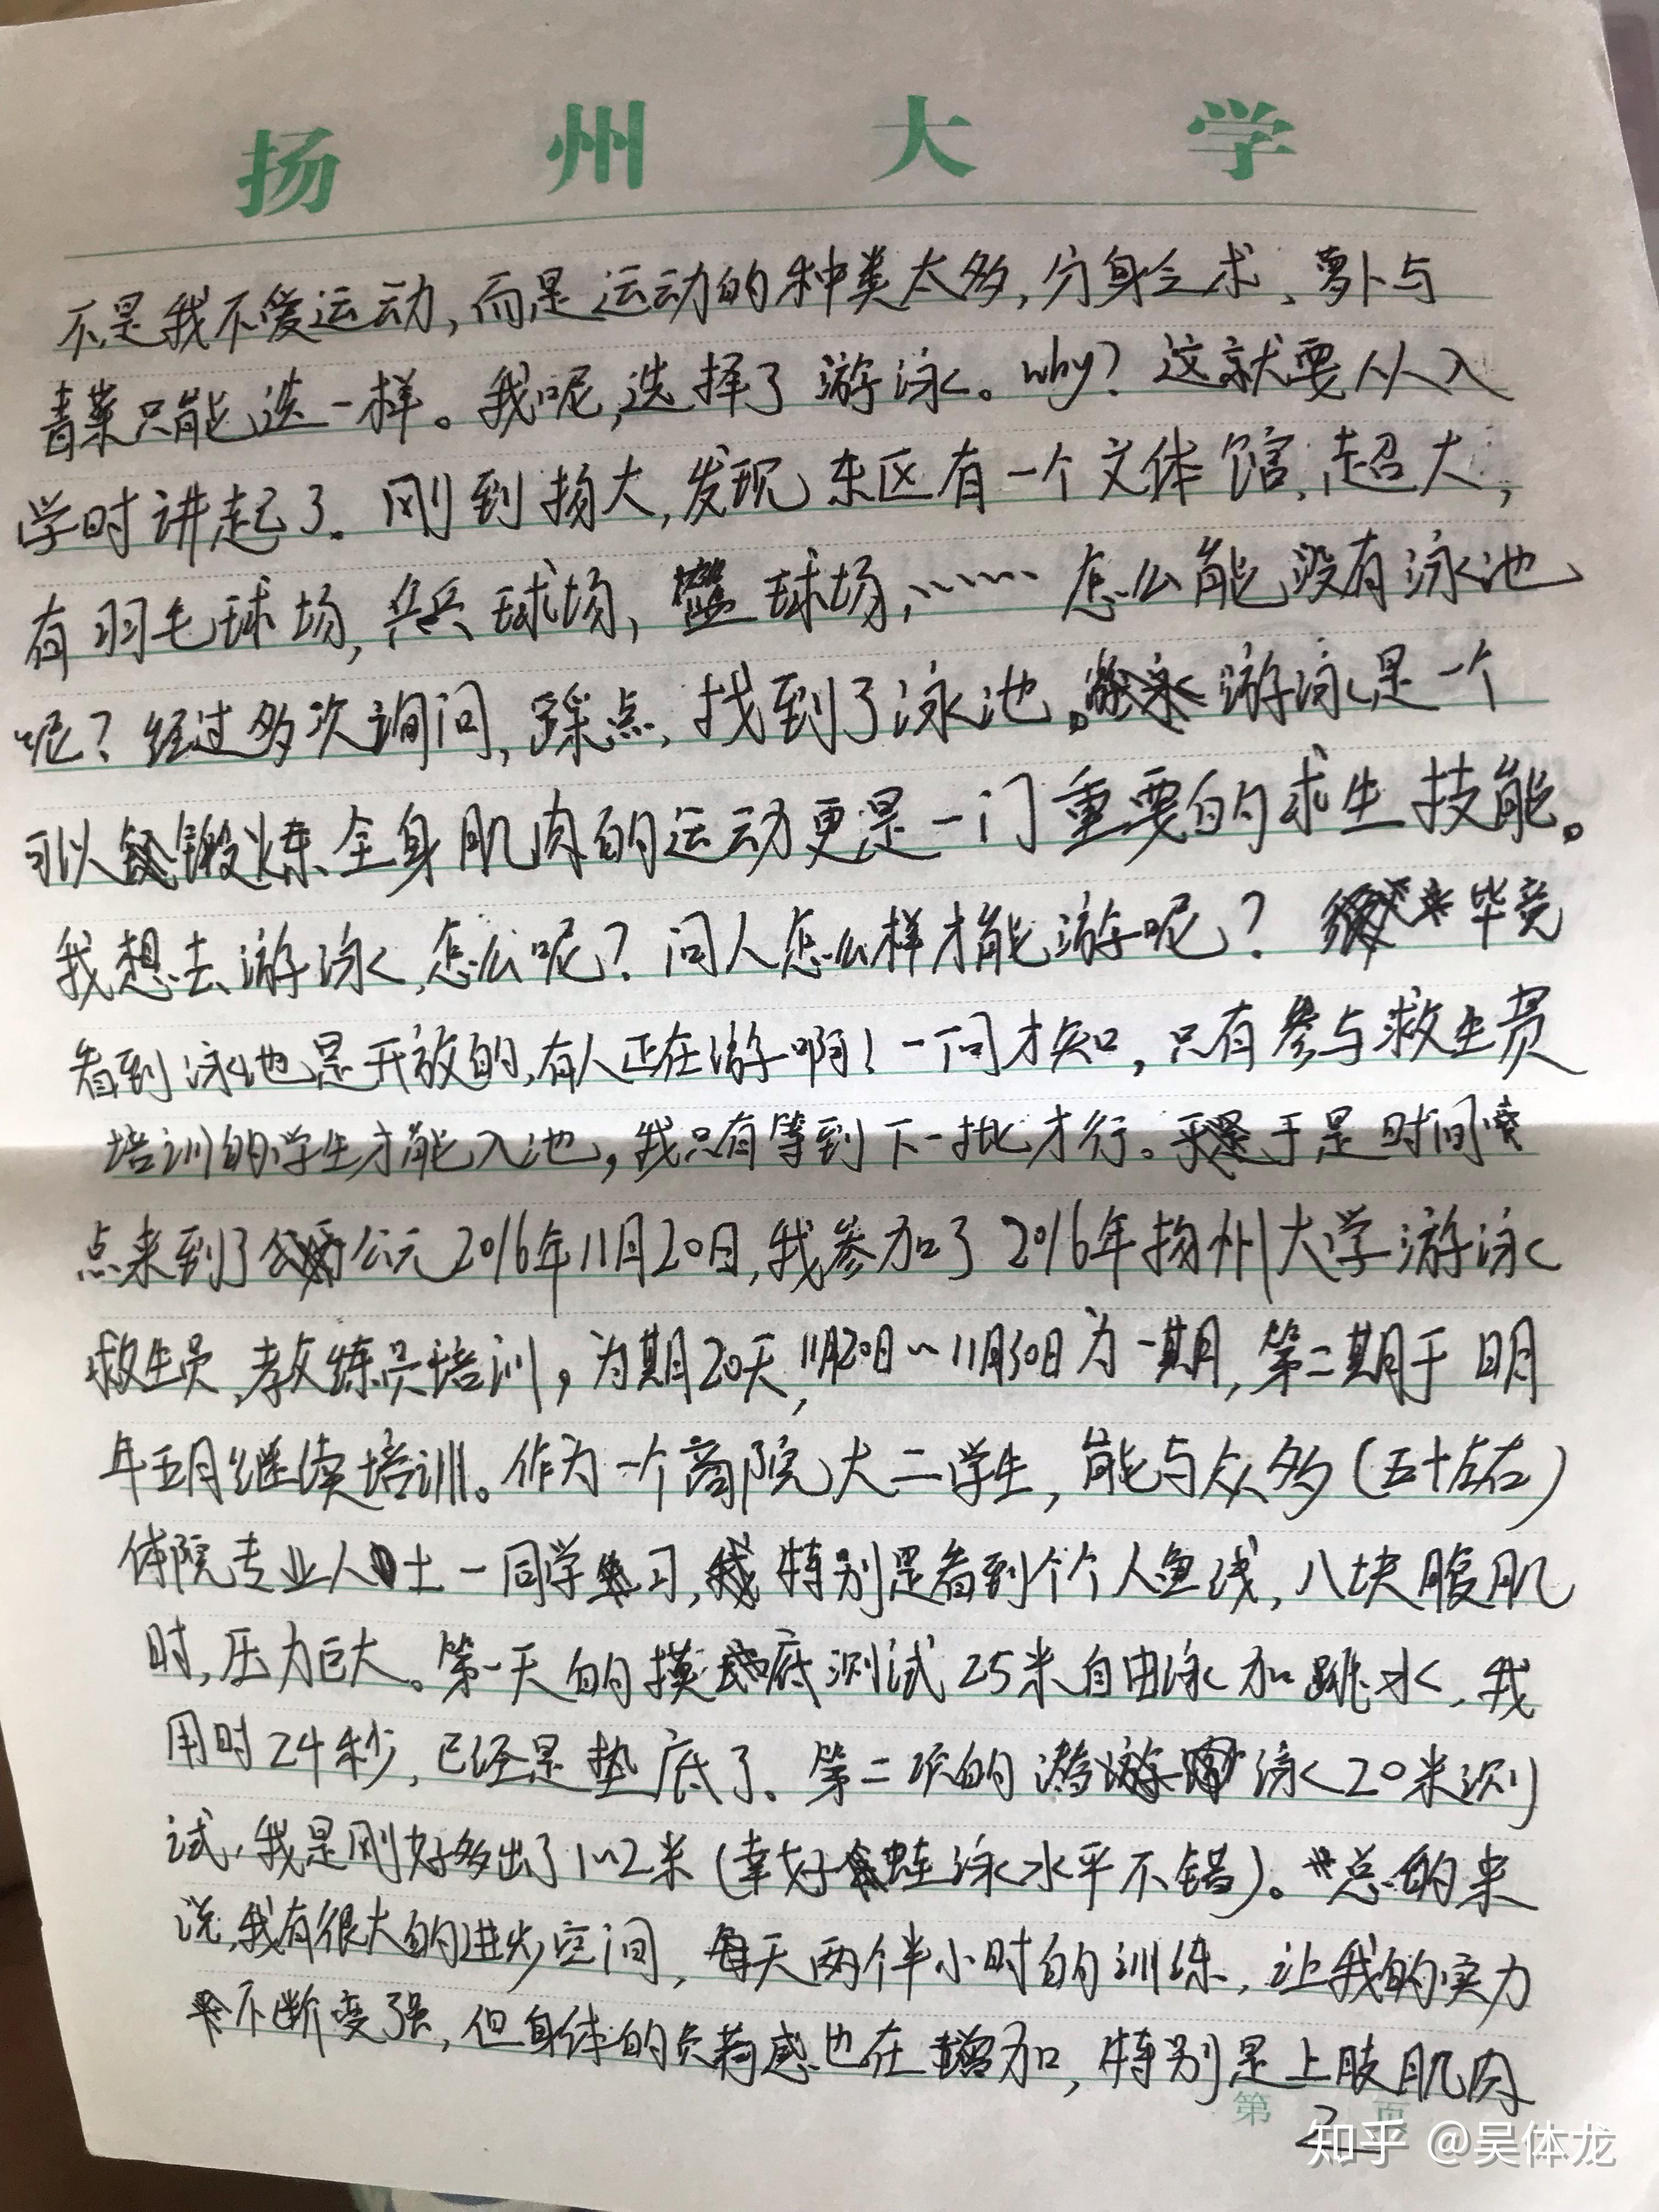 扬州大学
不是我不爱运动,而是运动的种类太多,分身乏术、萝卜与
青菜只能选一样。我呢,选择了游泳。why?这就要从入
学时讲起了。刚到扬大,发现东区有一个文体馆,超大,
有羽毛球场,乒乓球场,篮球场,……怎么能没有泳池
呢?经过多次询问,踩点,找到了泳池。游泳是一个
可以锻炼全身肌肉的运动更是一门重要的求生技能。
我想去游泳,怎么呢?问人怎么样才能游呢?毕竟
看到泳池也是开放的,有人正在游啊!一问才知,只有参与救生员
培训的学生才能入池,我只有等到下一批才行。于是时间
点来到了公元2016年11月20日,我参加了2016年扬州大学游泳
救生员、教练员培训,为期20天,11月20日~11月30日为一期,第二期于明
年五月继续培训。作为一个商院大二学生,能与众多(五十左右)
体院专业人士一同学习,特别是看到个个人鱼线,八块腹肌
时,压力巨大。第一天的摸底测试25米自由泳加跳水,我
用时24秒,已经是垫底了。第二项的潜泳20米测
试,我是刚好多出了1~2米(幸好蛙泳水平不错)。总的来
说,我有很大的进步空间,每天两个半小时的训练,让我的实力
不断变强,但身体的负荷感也在增加,特别是上肢肌肉
第 2 页
知乎 @吴体龙